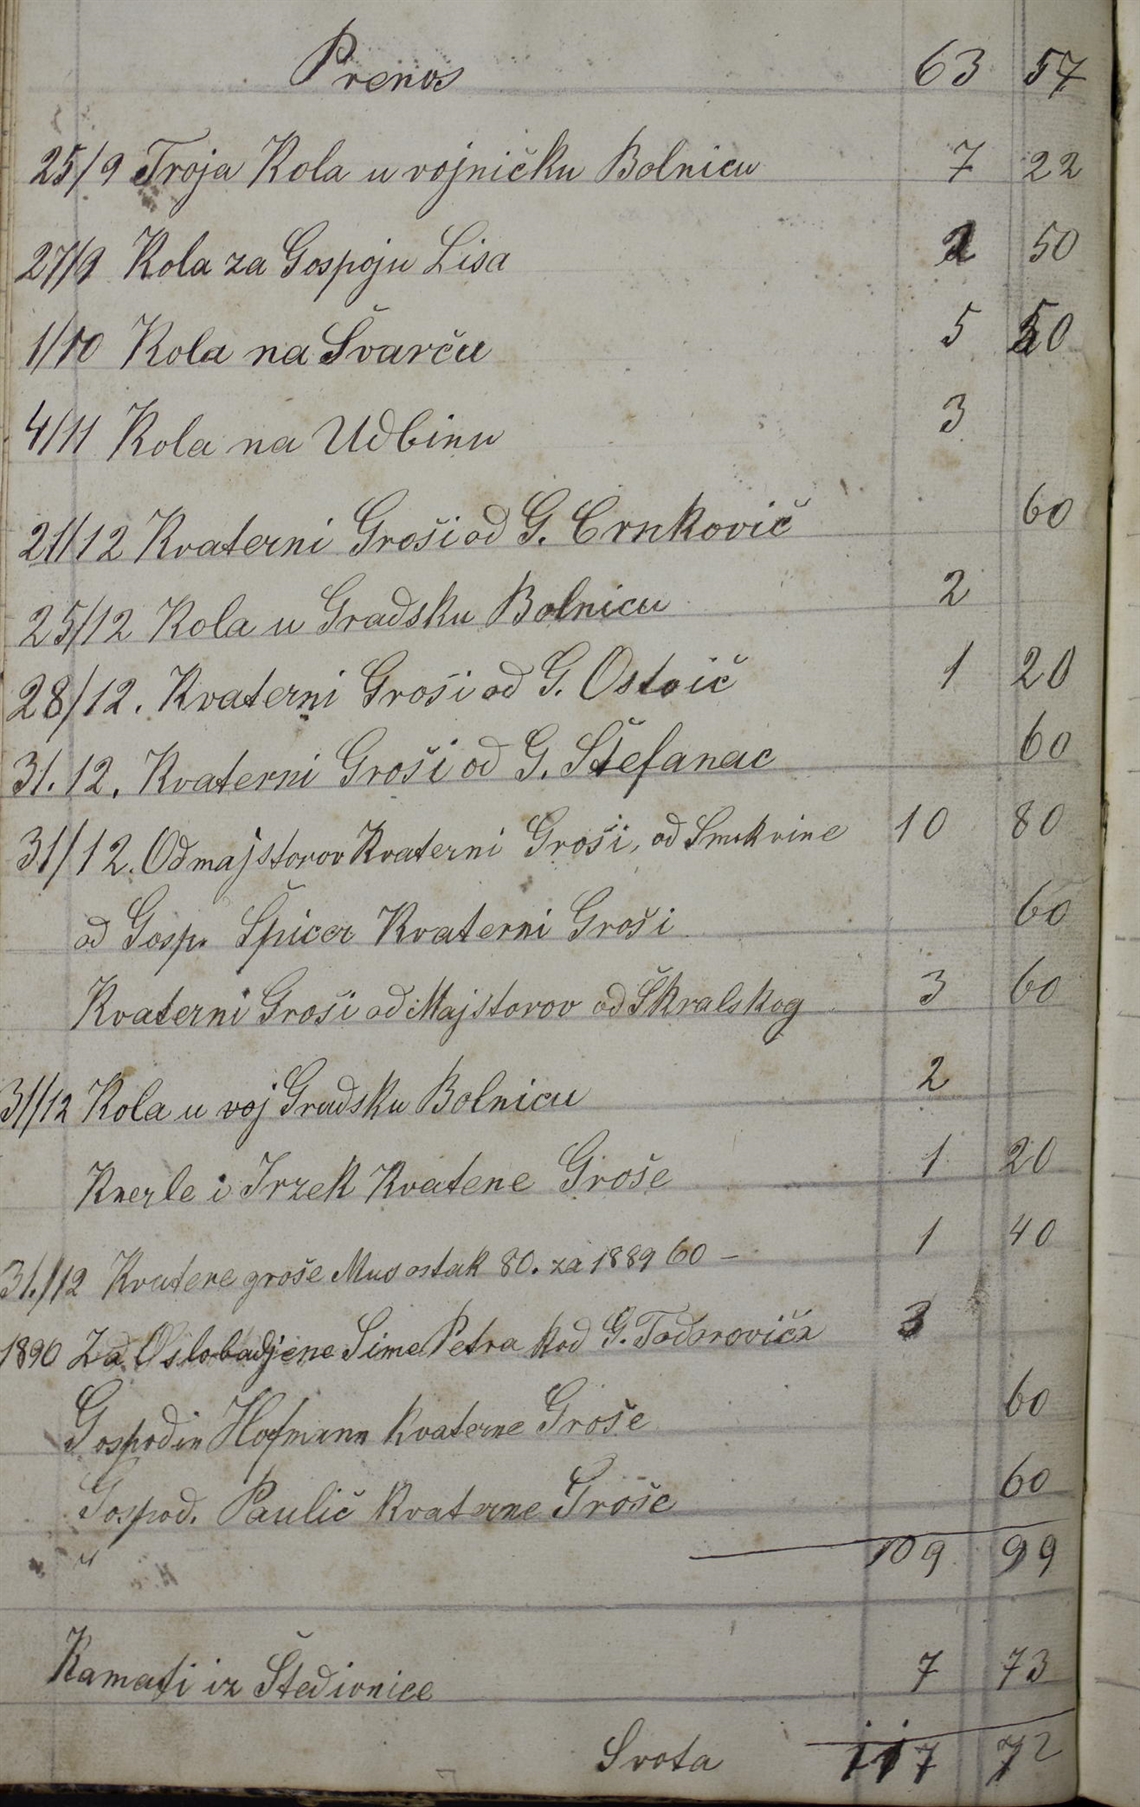 Prenos 63 57
25/9 Troja Kola u vojničku Bolnicu 7 22
27/9 Kola za Gospoju Lisa 2 50
1/10 Kola na Švarču 5 50
4/11 Kola na Udbinu 3
21/12 Kvaterni Groši od G. Crnkovič 60
25/12 Kola u Gradsku Bolnicu 2
28/12. Kvaterni Groši od G. Ostoič 1 20
31.12. Kvaterni Groši od G. Štefanac 60
31/12. Od majstorov Kvaterni Groši, od Smrkvine 10 80
od Gosp. Špicer Kvaterni Groši 60
Kvaterni Groši od Majstorov od Škralskog 3 60
31/12 Kola u voj Gradsku Bolnicu 2
Knerle i Irzek Kvatene Groše 1 20
31./12 Kvatere groše Mus ostak 80. za 1889 60 – 1 40
1890 Za Oslobadjene Sime Petra kod G. Todorovića 3
Gospodin Hofmann Kvaterne Groše 60
Gospod. Paulič Kvaterne Groše 60
" 109 99
Kamati iz Štedionice 7 73
Svota 117 72